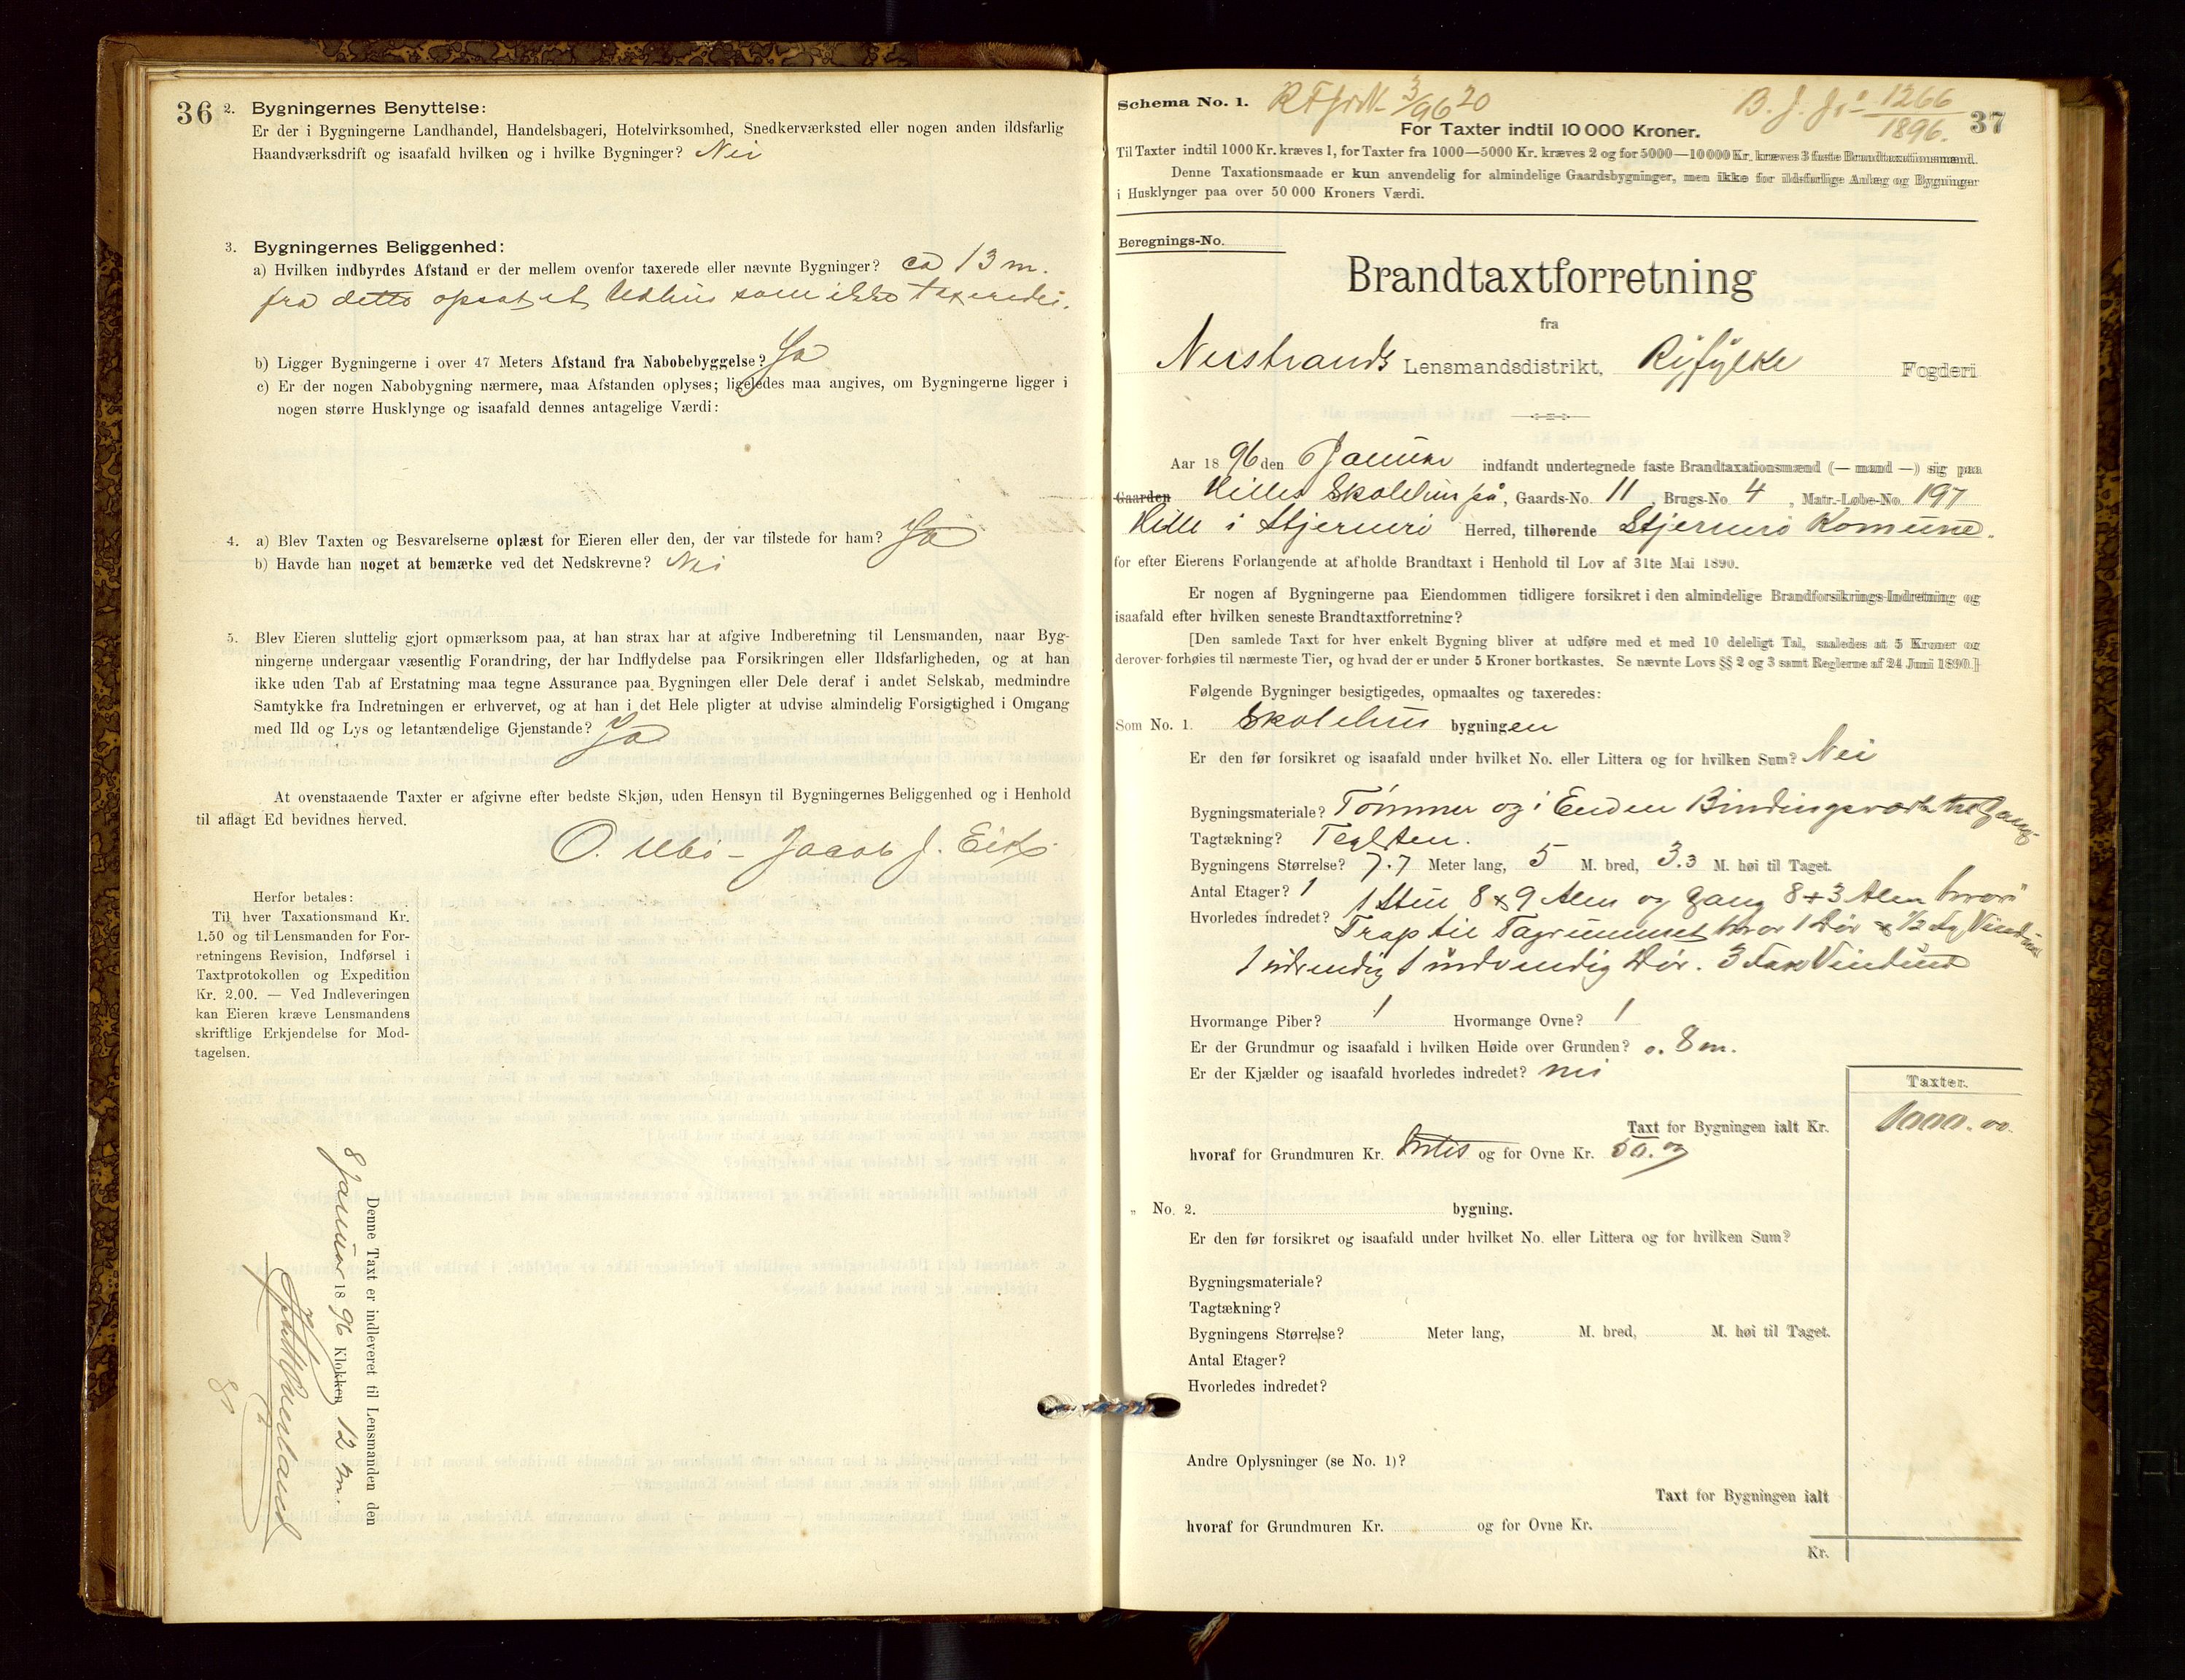 36
2. Bygningernes Benyttelse:
Er der i Bygningerne Landhandel, Handelsbageri, Hotelvirksomhed, Snedkerværksted eller nogen anden ildsfarlig
Haandværksdrift og isaafald hvilken og i hvilke Bygninger? Nei
3. Bygningernes Beliggenhed:
a) Hvilken indbyrdes Afstand er der mellem ovenfor taxerede eller nævnte Bygninger? ca 13 m.
fra dette opsat et Udhus som ikke taxeredes.
b) Ligger Bygningerne i over 47 Meters Afstand fra Nabobebyggelse? Ja
c) Er der nogen Nabobygning nærmere, maa Afstanden oplyses; ligeledes maa angives, om Bygningerne ligger i
nogen større Husklynge og isaafald dennes antagelige Værdi:
4. a) Blev Taxten og Besvarelserne oplæst for Eieren eller den, der var tilstede for ham? Ja
b) Havde han noget at bemærke ved det Nedskrevne? Nei
5. Blev Eieren sluttelig gjort opmærksom paa, at han strax har at afgive Indberetning til Lensmanden, naar Byg-
ningerne undergaar væsentlig Forandring, der har Indflydelse paa Forsikringen eller Ildsfarligheden, og at han
ikke uden Tab af Erstatning maa tegne Assurance paa Bygningen eller Dele deraf i andet Selskab, medmindre
Samtykke fra Indretningen er erhvervet, og at han i det Hele pligter at udvise almindelig Forsigtighed i Omgang
med Ild og Lys og letantændelige Gjenstande? Ja
At ovenstaaende Taxter er afgivne efter bedste Skjøn, uden Hensyn til Bygningernes Beliggenhed og i Henhold
til aflagt Ed bevidnes herved.
O. Ubø - Jacob J. Eike
Herfor betales:
Til hver Taxationsmand Kr.
1.50 og til Lensmanden for For-
retningens Revision, Indførsel i
Taxtprotokollen og Expedition
Kr. 2.00. — Ved Indleveringen
kan Eieren kræve Lensmandens
skriftlige Erkjendelse for Mod-
tagelsen.
Denne Taxt er indleveret til Lensmanden den
8 Januar 1896 Klokken 12 m.
37
Schema No. 1. 3/96 20 B. J. 1266
1896.
For Taxter indtil 10 000 Kroner.
Til Taxter indtil 1000 Kr. kræves 1, for Taxter fra 1000—5000 Kr. kræves 2 og for 5000—10 000 Kr. kræves 3 faste Brandtaxationsmænd.
Denne Taxationsmaade er kun anvendelig for almindelige Gaardsbygninger, men ikke for ildsfarlige Anlæg og Bygninger
i Husklynger paa over 50 000 Kroners Værdi.
Beregnings-No.
Brandtaxtforretning
fra
Nerstrands Lensmandsdistrikt, Ryfylke Fogderi
Aar 1896 den 6 Januar indfandt undertegnede faste Brandtaxationsmænd (— mand —) sig paa
Gaarden Hille Skolehus på, Gaards-No. 11, Brugs-No. 4, Matr.-Løbe-No. 197
Hille i Stjernerø Herred, tilhørende Stjernerø Komune.
for efter Eierens Forlangende at afholde Brandtaxt i Henhold til Lov af 31te Mai 1890.
Er nogen af Bygningerne paa Eiendommen tidligere forsikret i den almindelige Brandforsikrings-Indretning og
isaafald efter hvilken seneste Brandtaxtforretning?
[Den samlede Taxt for hver enkelt Bygning bliver at udføre med et med 10 deleligt Tal, saaledes at 5 Kroner og
derover forhøies til nærmeste Tier, og hvad der er under 5 Kroner bortkastes. Se nævnte Lovs §§ 2 og 3 samt Reglerne af 24 Juni 1890.]
Følgende Bygninger besigtigedes, opmaaltes og taxeredes:
Som No. 1. Skolehus bygningen
Er den før forsikret og isaafald under hvilket No. eller Littera og for hvilken Sum? Nei
Bygningsmateriale? Tømmer og i Enden Bindingsværk til Gang
Tagtækning? Teglsten.
Bygningens Størrelse? 7.7 Meter lang, 5 M. bred, 3.3 M. høi til Taget.
Antal Etager? 1
Hvorledes indredet? 1 Stue 8 x 9 Alen og Gang 8 + 3 Alen hvori
Trap til Tagrummet hvor 1 Dør & 1/2 Fag Vindue
1 udvendig 1 indvendig Dør. 3 Fak Vinduer
Hvormange Piber? 1 Hvormange Ovne? 1
Er der Grundmur og isaafald i hvilken Høide over Grunden? 0.8 m.
Er der Kjælder og isaafald hvorledes indredet? nei
Taxter.
Taxt for Bygningen ialt Kr. 1000.00
hvoraf for Grundmuren Kr. Intet og for Ovne Kr. 50.00
„ No. 2. bygning.
Er den før forsikret og isaafald under hvilket No. eller Littera og for hvilken Sum?
Bygningsmateriale?
Tagtækning?
Bygningens Størrelse? Meter lang, M. bred, M. høi til Taget.
Antal Etager?
Hvorledes indredet?
Andre Oplysninger (se No. 1)?
Taxt for Bygningen ialt
hvoraf for Grundmuren Kr. og for Ovne Kr.
Kr.